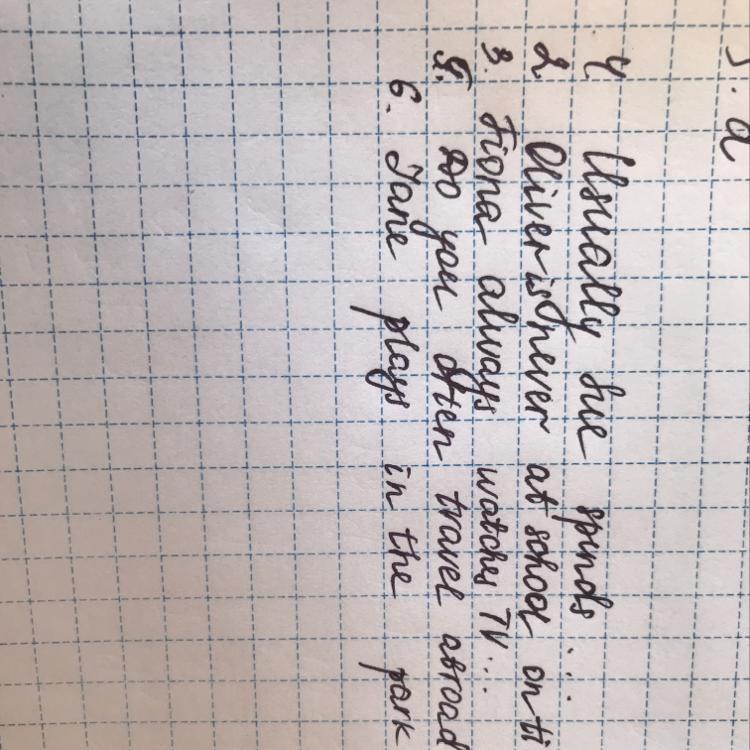 Usually Sue spends ...
2 Oliver is never at school on ti
3. Fiona always watches TV...
5. Do you often travel abroad
6. Jane plays in the park